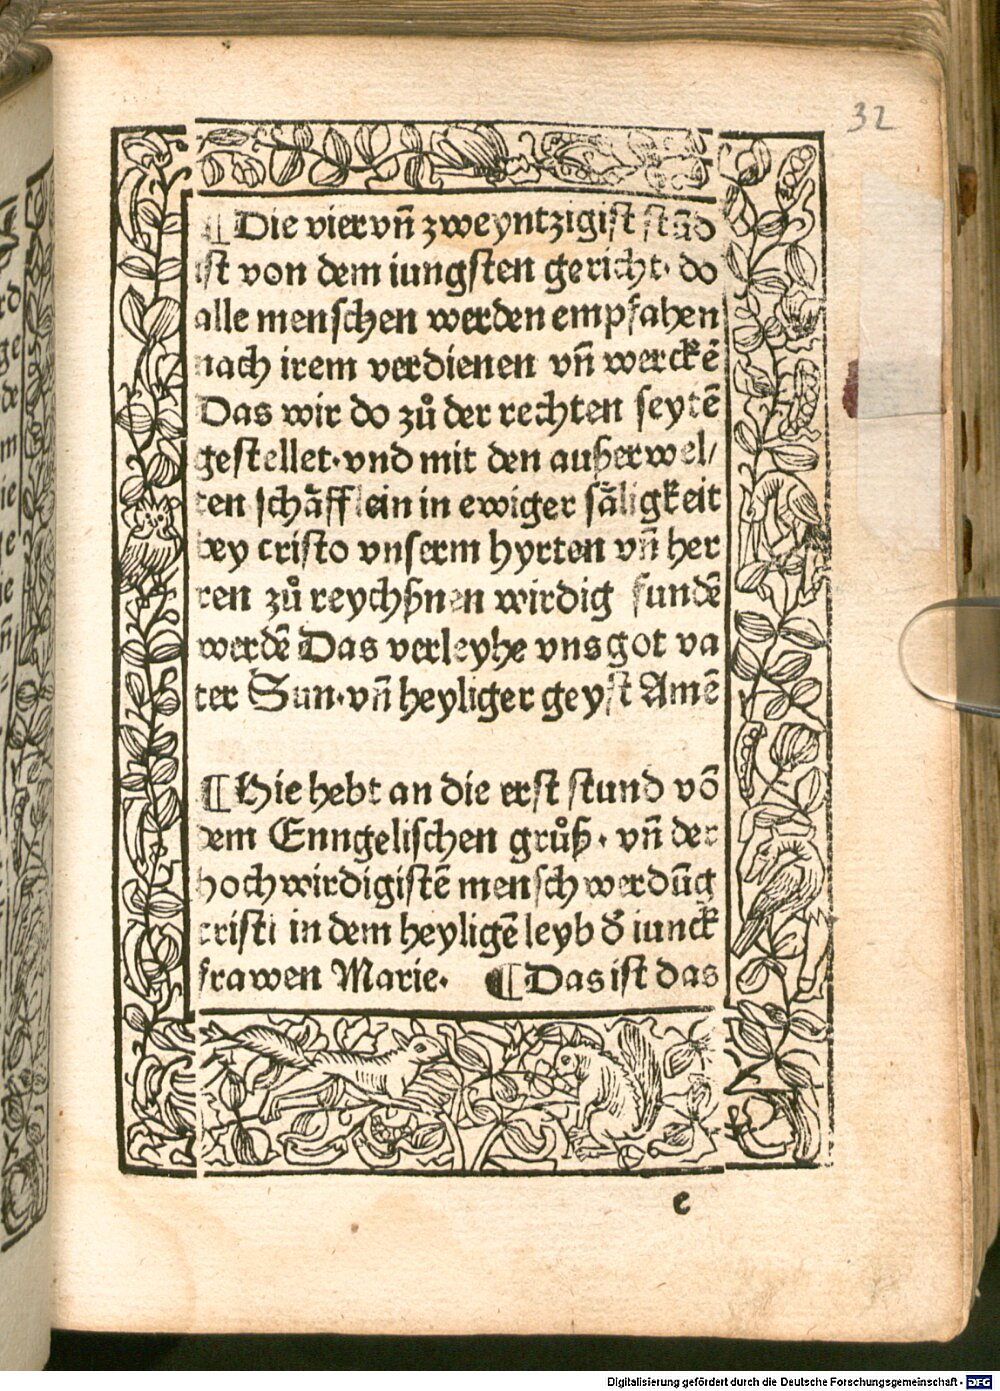 32
¶ Die vier vñ zweyntzigist stũd
ist von dem iungsten gericht· do
alle menschen werden empfahen
nach irem verdienen vñ werckẽ
Das wir do zů der rechten seytẽ
gestellet· vnd mit den außerwel/
ten schåfflein in ewiger såligkeit
bey cristo vnserm hyrten vñ her
ren zů reychßnen wirdig fundẽ
werdẽ Das verleyhe vns got va
ter Sun· vñ heyliger geyst Amẽ
¶ Hie hebt an die erst stund võ
dem Enngelischen grůß· vñ der
hochwirdigistẽ menschwerdũg
cristi in dem heyligẽ leyb d̕ iunck
frawen Marie· ¶ Das ist das
e
Digitalisierung gefördert durch die Deutsche Forschungsgemeinschaft - DFG